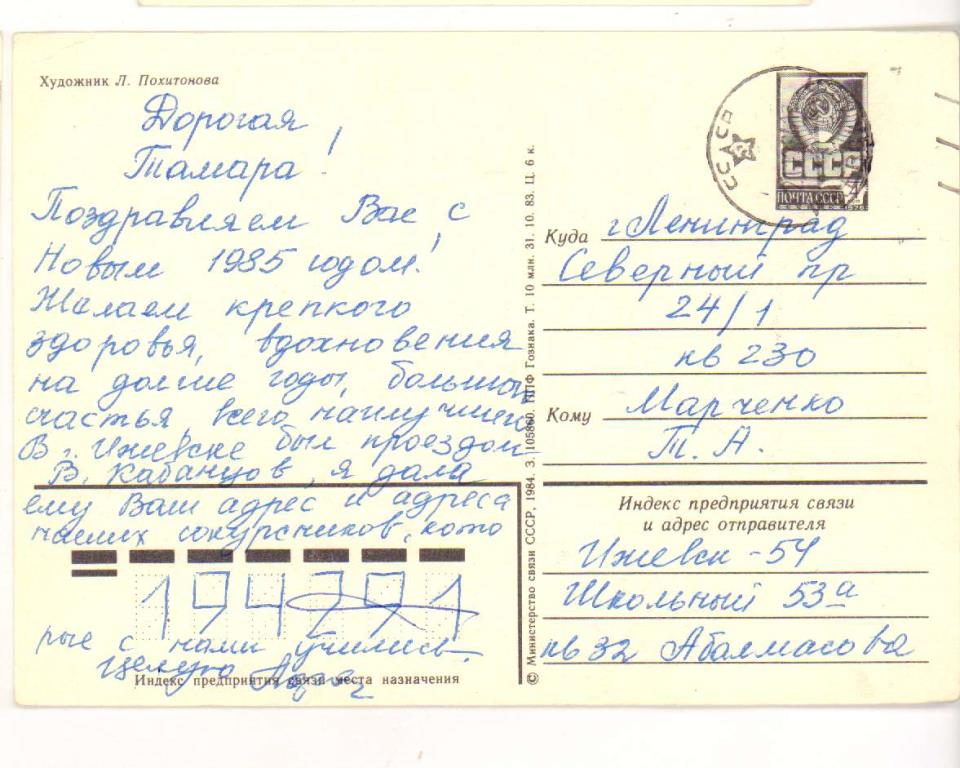 Художник Л. Похитонова
Дорогая
Тамара!
Поздравляем Вас с
Новым 1985 годом!
Желаем крепкого
здоровья, вдохновения
на долгие годы, больших
счастья, всего наилучшего
В г. Ижевске был проездом
В. Кабанцов, я дала
ему Ваш адрес и адреса
наших сокурсников, кото
194291
рые с нами учились.
Целую
Индекс предприятия связи места назначения
© Министерство связи СССР, 1984. З. 105860. ППФ Гознака. Т. 10 млн. 31. 10. 83. Ц. 6 к.
СССР
ПОЧТА СССР
Куда г Ленинград
Северный пр
24/1
кв 230
Кому Марченко
Т. А.
Индекс предприятия связи
и адрес отправителя
Ижевск-54
Школьный 53а
кв 32 Абалмасова